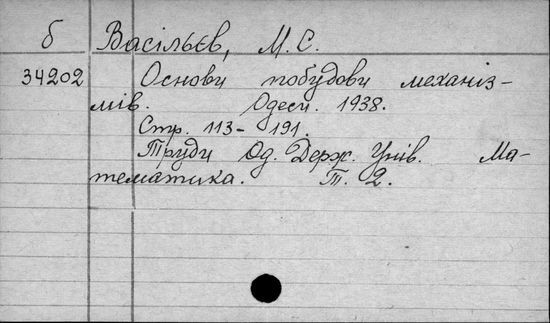 б Васільєв, М. С.
34202 Основи побудови механіз-
мів. Одеси. 1938.
Стр. 113-191.
Труди Од. Держ. Унів. Ма-
тематика. Т. 2.